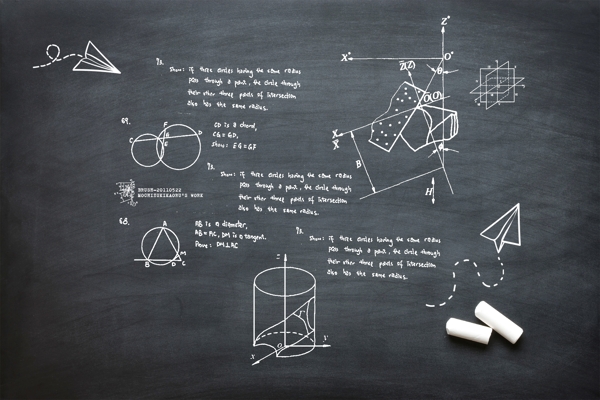 73.
Show: if three circles having the same radius
pass through a point, the circle through
their other three points of intersection
also has the same radius.
69.
CD is a chord,
CG = GD,
Show: EG=GF
C
F
G
E
D
73.
Show: if three circles having the same radius
pass through a point, the circle through
their other three points of intersection
also has the same radius.
BRUSH-20110522
MOCHITUKIKAORU'S WORK
68.
AB is a diameter,
AB = AC, DM is a tangent.
Prove: DM⊥AC
A
M
B
D
C
73.
Show: if three circles having the same radius
pass through a point, the circle through
their other three points of intersection
also has the same radius.
Z°
X°
O°
θ
Z(Z)
O(O)
X
X
B
H
z
r
O
x
y